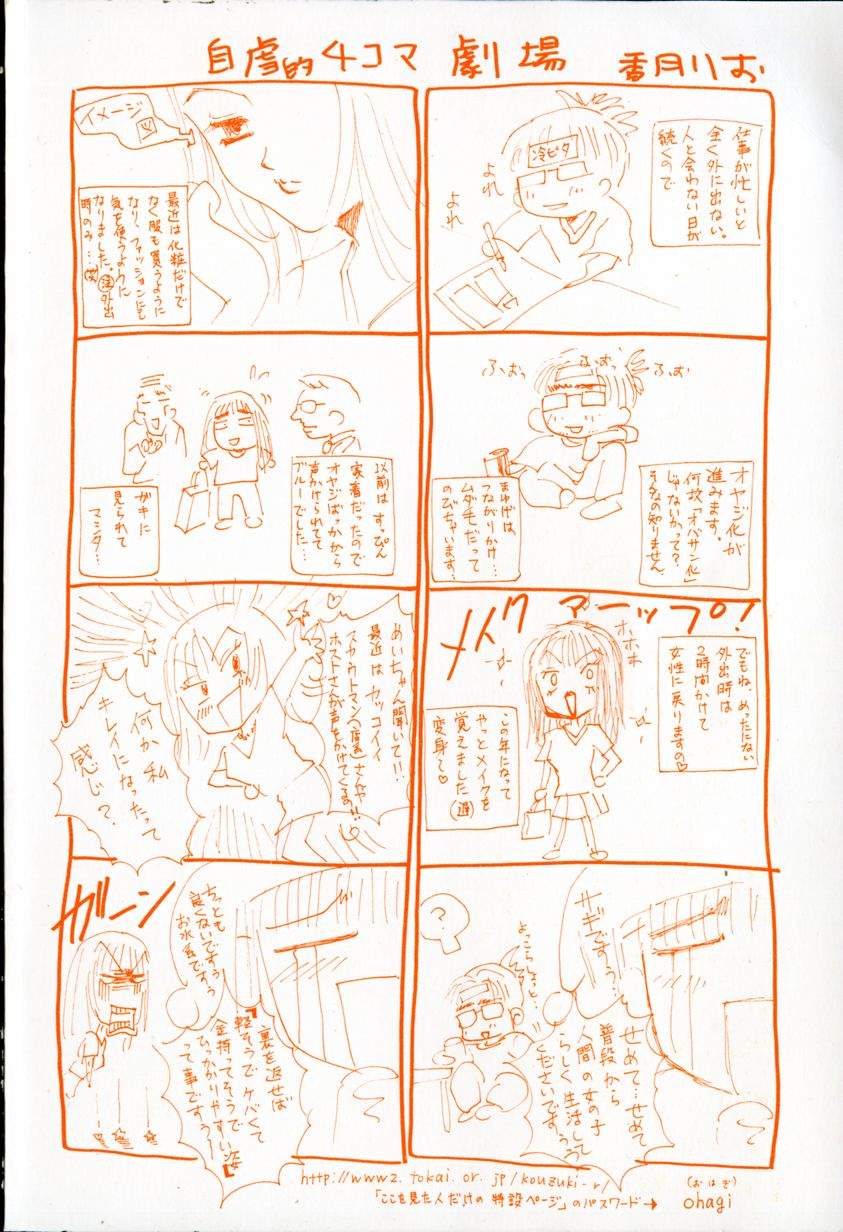 自虐的4コマ 劇場 香月りお
仕事が忙しいと
全く外に出ない。
人と会わない日が
続くので
冷ピタ
よれ
よれ
ふぉっ
ふぉぉっ
ふぉぉ
オヤジ化が
進みます。
何故「オバサン化」
じゃないかって?
そんなの知りません
まゆげは、
つながりかけ…
ムダ毛だって
のびちゃいます…
メイクアーップ!
ホホホ
でもね、めったにない
外出時は
2時間かけて
女性に戻りますの♡
この年になって
やっとメイクを
覚えました(遅)
変身〜♡
サギですぅ…
せめて…せめて
普段から
人間の女の子
らしく生活して
くださいですぅぅ
?
よっこらしょっと…
イメージ
図
最近は化粧だけで
なく服も買うように
なり、ファッションにも
気を使うように
なりました。注外出
時のみ…(笑)
以前は すっぴん
家着だったので
オヤジばっかから
声かけられてて
ブルーでした…
ガキに
見られて
マシタ…
めいちゃん聞いて!!
最近はカッコイイ
スカウトマン(風)さんや
ホストさんが声をかけてくるの!!♡
何か私
キレイになったって
感じ?
ちっとも
良くないですぅ
お水系ですぅ
裏を返せば
『軽そうでケバくて
金持ってそうで
ひっかかりやすい姿』
って事ですぅ〜
ガーン
http://www2.tokai.or.jp/kouzuki-r/
「ここを見た人だけの特設ページ」のパスワード→
(おはぎ)
ohagi